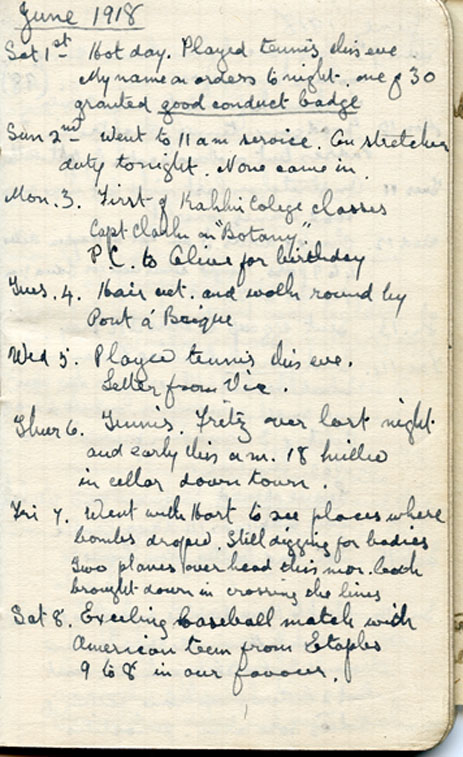 June 1918
Sat 1st Hot day. Played tennis this eve
My name on orders to night. one of 30
granted good conduct badge
Sun 2nd Went to 11 am service. On stretcher
duty tonight. None came in.
Mon. 3. First of Kahki College classes
Capt Clarke on "Botany"
P.C. to Olive for birthday
Tues. 4. Hair cut. and walk round by
Pont à Brique
Wed 5. Played tennis this eve.
Letter from Vic.
Thur 6. Tennis. Fritz over last night
and early this a.m. 18 killed
in cellar down town.
Fri 7. Went with Hort to see places where
bombs droped. Still digging for bodies
Two planes over head this mor. both
brought down in crossing the lines
Sat 8. Exceling baseball match with
American team from Etaples
9 to 8 in our favour.